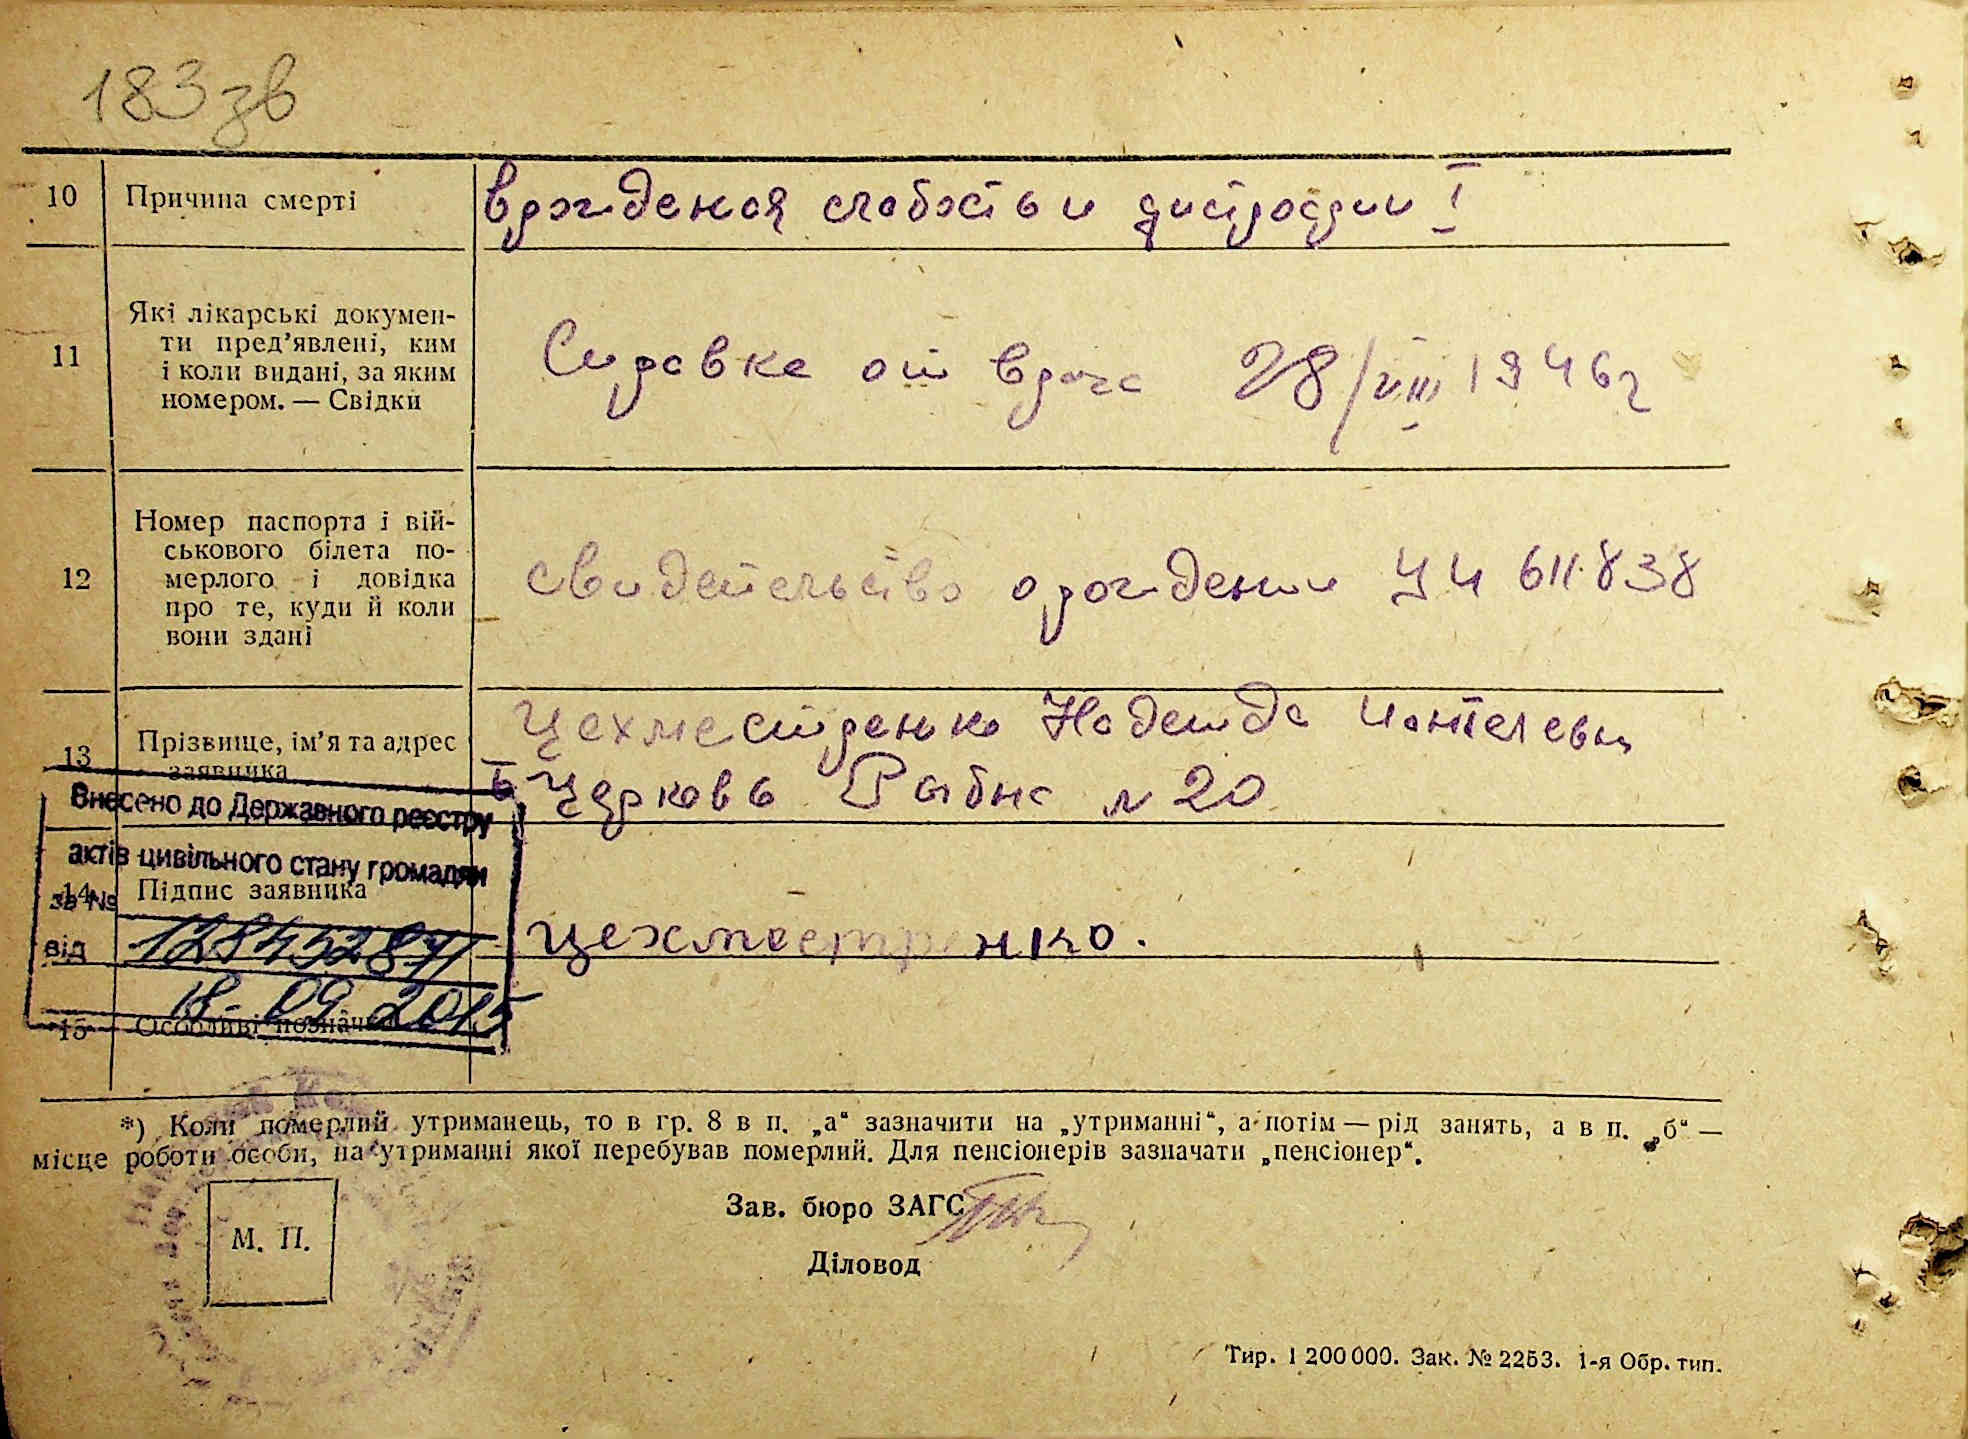 183 зв
10 Причина смерті врожденая слабость и дистрофии I
11 Які лікарські докумен-
ти пред’явлені, ким
і коли видані, за яким
номером. — Свідки
Справка от врача 28/VIII 1946 г
12 Номер паспорта і вій-
ськового білета по-
мерлого і довідка
про те, куди й коли
вони здані
свидетельство о рождении 611838
13 Прізвище, ім’я та адрес
заявника
Цехместренко Надежда
Церковь Рыбна № 20
Внесено до Державного реєстру
актів цивільного стану громадян
за №
від
18.09.2015
14 Підпис заявника Цехместренко.
15 Особливі позначки
*) Коли померлий утриманець, то в гр. 8 в п. „а“ зазначити на „утриманні“, а потім — рід занять, а в п. „б“ —
місце роботи особи, на утриманні якої перебував померлий. Для пенсіонерів зазначати „пенсіонер“.
Зав. бюро ЗАГС
М. П.
Діловод
Тир. 1 200 000. Зак. № 2253. 1-я Обр. тип.